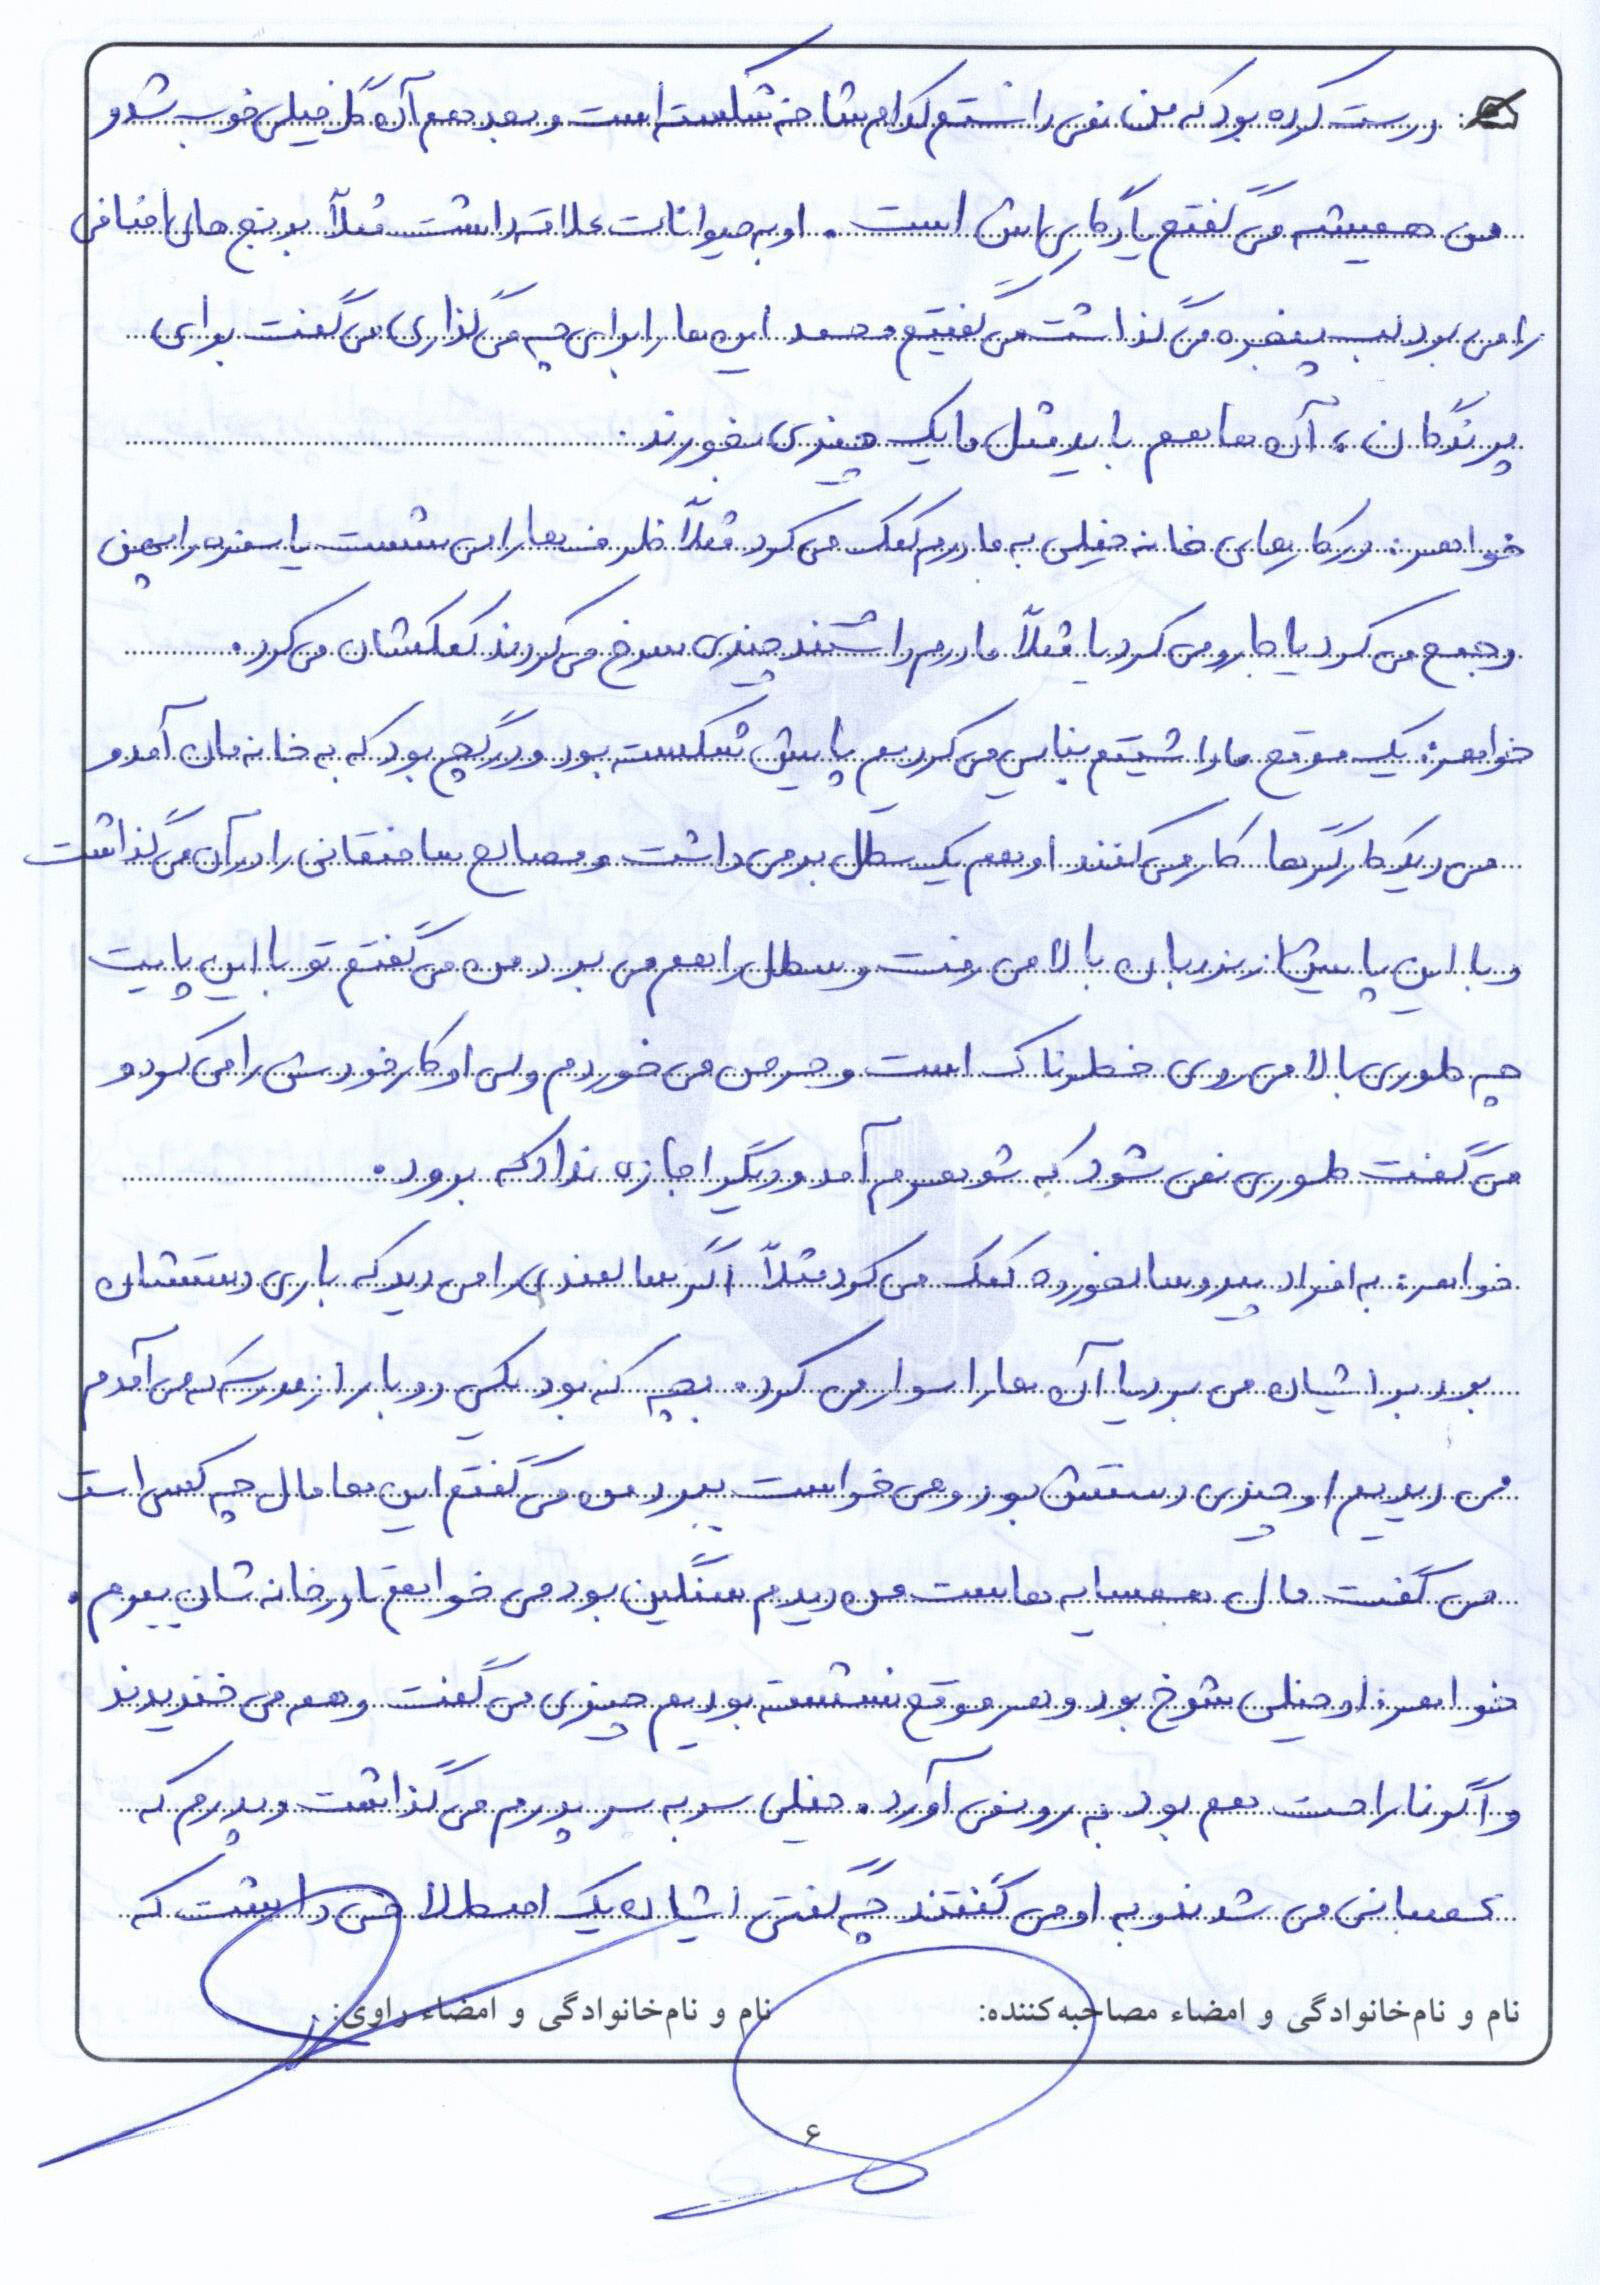 درست کرده بود که من نمی دانستم کدام شاخه شکسته است و بعد هم آن گل خیلی خوب شد و
من همیشه می گفتم یادگاری اش است. او به حیوانات علاقه داشت مثلاً برنج های اضافی
را می برد لب پنجره می گذاشت می گفتیم محمد این ها را برای چه می گذاری می گفت برای
پرندگان، آن ها هم باید مثل ما یک چیزی بخورند.
خواهر: در کارهای خانه خیلی به مادرم کمک می کرد مثلاً ظرف ها را می شست یا سفره را پهن
و جمع می کرد یا جارو می کرد یا مثلاً مادرم داشتند چیزی سرخ می کردند کمکشان می کرد.
خواهر: یک موقع ما داشتیم بنایی می کردیم پایش شکسته بود و در گچ بود که به خانه مان آمد و
می دید کارگرها کار می کنند او هم یک سطل بر می داشت و مصالح ساختمانی را در آن می گذاشت
و با این پایش از نردبان بالا می رفت و سطل را هم می برد من می گفتم تو با این پایت
چه طوری بالا می روی خطرناک است و حرص می خوردم ولی او کار خودش را می کرد و
می گفت طوری نمی شود که شوهرم آمد و دیگر اجازه نداد که برود.
خواهر: به افراد پیر و سالخورده کمک می کرد مثلاً اگر سالمندی را می دید که باری دستشان
بود براشیان می برد یا آن ها را سوار می کرد. بچه که بود یکی دو بار از مدرسه که می آمدم
می دیدیم او چیزی دستش بود و می خواست ببرد من می گفتم این ها مال چه کسی است
می گفت مال همسایه هاست من دیدم سنگین بود می خواهم تا در خانه شان ببرم.
خواهر: او خیلی شوخ بود و هر موقع نشسته بودیم چیزی می گفت و همه می خندیدند
و اگر ناراحت هم بود به رو نمی آورد. خیلی سر به سر پدرم می گذاشت و پدرم که
عصبانی می شدند و به او می گفتند چه گفتی ایشان یک اصطلاحی داشت که
نام و نام‌خانوادگی و امضاء مصاحبه‌کننده: نام و نام‌خانوادگی و امضاء راوی:
۶